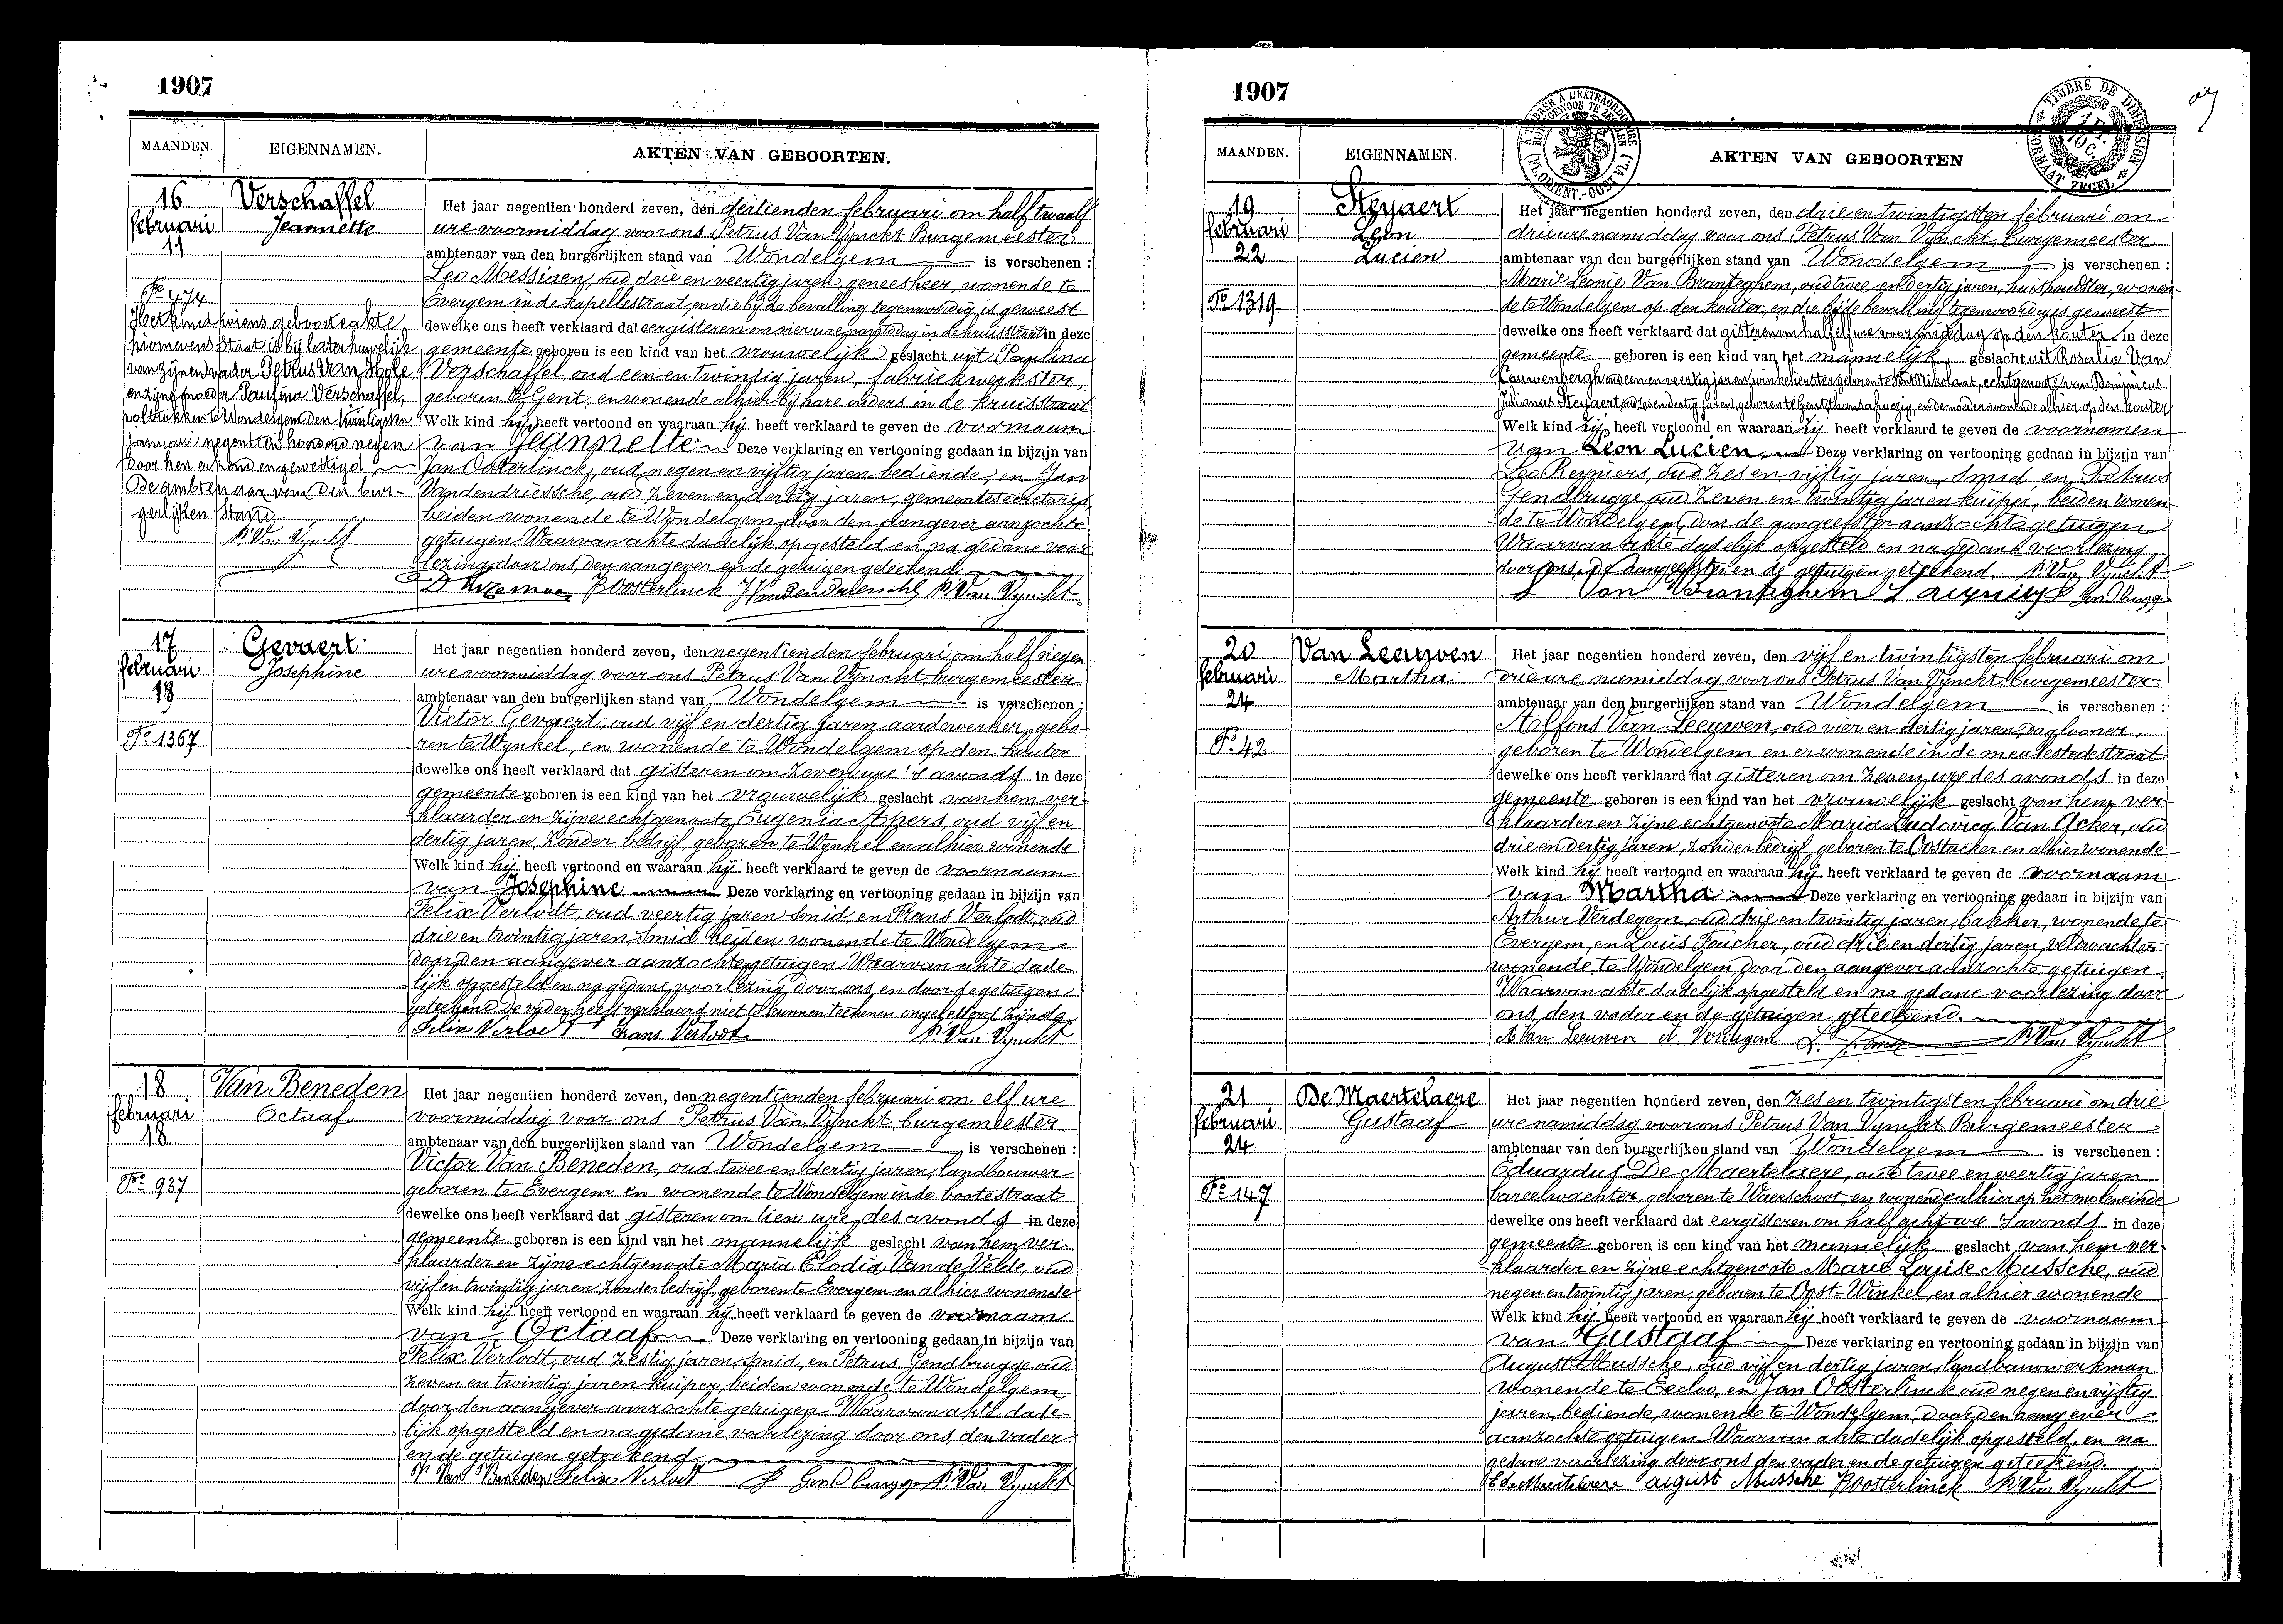 1907
MAANDEN. EIGENNAMEN. AKTEN VAN GEBOORTEN.
16
februari
11
Fo 474
Verschaffel
Jeannette
Het kind wiens geboorteakte
hiernevens staat is bij later huwelijk
van zijnen vader Petrus Van Hole
en zijne moeder Paulina Verschaffel,
voltrokken te Wondelgem den twintigsten
Januari negentien honderd negen
door hen erkend en gewettigd.
De ambtenaar van den bur-
gerlijken Stand.
P. Van Vynckt
Het jaar negentien honderd zeven, den dertienden februari om half twaalf
ure voormiddag voor ons Petrus Van Vynckt Burgemeester
ambtenaar van den burgerlijken stand van Wondelgem is verschenen :
Leo Messiaen, oud drie en veertig jaren, geneesheer, wonende te
Evergem in de kapellestraat, en die bij de bevalling tegenwoordig is geweest
dewelke ons heeft verklaard dat eergisteren om vier ure namiddag in de kruisstraat in deze
gemeente geboren is een kind van het vrouwelijk geslacht uit Paulina
Verschaffel, oud een en twintig jaren, fabriekwerkster,
geboren te Gent, en wonende alhier bij hare ouders in de kruisstraat
Welk kind hij heeft vertoond en waaraan hij heeft verklaard te geven de voornaam
van Jeannette Deze verklaring en vertooning gedaan in bijzijn van
Jan Oosterlinck, oud negen en vijftig jaren bediende, en Jan
Vandendriessche, oud zeven en dertig jaren, gemeentesecretaris
beiden wonende te Wondelgem, door den aangever aanzochte
getuigen. Waarvan akte dadelijk opgesteld en na gedane voor
lezing door ons, den aangever en de getuigen geteekend.
Boosterlinck J Vandendriessche P. Van Vynckt
17
februari
18
Fo 1367
Gevaert
Josephine
Het jaar negentien honderd zeven, den negentienden februari om half negen
ure voormiddag voor ons Petrus Van Vynckt, burgemeester
ambtenaar van den burgerlijken stand van Wondelgem is verschenen :
Victor Gevaert, oud vijf en dertig jaren, aardewerker, gebo-
ren te Wynkel, en wonende te Wondelgem op den kouter
dewelke ons heeft verklaard dat gisteren om zeven ure 's avonds in deze
gemeente geboren is een kind van het vrouwelijk geslacht van hem ver-
klaarder en zijne echtgenoote Eugenia Apers, oud vijf en
dertig jaren, zonder bedrijf, geboren te Wynkel en alhier wonende
Welk kind hij heeft vertoond en waaraan hij heeft verklaard te geven de voornaam
van Josephine Deze verklaring en vertooning gedaan in bijzijn van
Felix Verlodt, oud veertig jaren smid, en Frans Verlodt, oud
drie en twintig jaren, smid beiden wonende te Wondelgem
door den aangever aanzochte getuigen. Waarvan akte dade-
lijk opgesteld en na gedane voorlezing door ons, en door de getuigen
geteekend. De vader heeft verklaard niet te kunnen teekenen ongeletterd zijnde.
Felix Verlodt Frans Verlodt P. Van Vynckt
18
februari
18
Fo 937
Van Beneden
Octaaf
Het jaar negentien honderd zeven, den negentienden februari om elf ure
voormiddag voor ons Petrus Van Vynckt, burgemeester
ambtenaar van den burgerlijken stand van Wondelgem is verschenen :
Victor Van Beneden, oud twee en dertig jaren, landbouwer
geboren te Evergem en wonende te Wondelgem in de bootestraat
dewelke ons heeft verklaard dat gisteren om tien ure, des avonds in deze
gemeente geboren is een kind van het mannelijk geslacht van hem ver-
klaarder en zijne echtgenoote Maria Elodia Van de Velde, oud
vijf en twintig jaren zonder bedrijf, geboren te Evergem en alhier wonende
Welk kind hij heeft vertoond en waaraan hij heeft verklaard te geven de voornaam
van Octaaf Deze verklaring en vertooning gedaan in bijzijn van
Felix Verlodt, oud zestig jaren smid, en Petrus Gendbrugge oud
zeven en twintig jaren kuiper, beiden wonende te Wondelgem,
door den aangever aanzochte getuigen. Waarvan akte dade-
lijk opgesteld en na gedane voorlezing door ons, den vader
en de getuigen geteekend.
V Van Beneden Felix Verlodt P Gendbrugge P. Van Vynckt
1907
MAANDEN. EIGENNAMEN. AKTEN VAN GEBOORTEN
TIMBRE DE DIMENSION
FORMAAT ZEGEL
19
februari
22
Fo 1319
Steyaert
Leon
Lucien
Het jaar negentien honderd zeven, den drie en twintigsten februari om
drie ure namiddag voor ons Petrus Van Vynckt, burgemeester
ambtenaar van den burgerlijken stand van Wondelgem is verschenen :
Marie Leonie Van Branteghem, oud twee en dertig jaren, huishoudster, wonen-
de te Wondelgem op den kouter, en die bij de bevalling tegenwoordig is geweest
dewelke ons heeft verklaard dat gisteren om half elf ure voormiddag op den kouter in deze
gemeente geboren is een kind van het mannelijk geslacht uit Rosalie Van
Cauwenbergh oud een en veertig jaren, winkelierster geboren te Sint Nikolaas, echtgenoote van Dominicus
Julianus Steyaert oud zes en dertig jaren, geboren te Gent, thans afwezig, en de moeder wonende alhier op den kouter
Welk kind zij heeft vertoond en waaraan zij heeft verklaard te geven de voornamen
van Leon Lucien Deze verklaring en vertooning gedaan in bijzijn van
Leo Reyniers, oud zes en vijftig jaren, smid en Petrus
Gendbrugge oud zeven en twintig jaren kuiper, beiden wonen-
de te Wondelgem, door de aangeefster aanzochte getuigen
Waarvan akte dadelijk opgesteld en na gedane voorlezing
door ons, de aangeefster en de getuigen geteekend. P. Van Vynckt
Van Branteghem L Reyniers Gendbrugge
20
februari
24
Fo 42
Van Leeuwen
Martha
Het jaar negentien honderd zeven, den vijf en twintigsten februari om
drie ure namiddag voor ons Petrus Van Vynckt, burgemeester
ambtenaar van den burgerlijken stand van Wondelgem is verschenen :
Alfons Van Leeuwen, oud vier en dertig jaren, daglooner,
geboren te Wondelgem en er wonende in de meulestedestraat
dewelke ons heeft verklaard dat gisteren om zeven ure des avonds in deze
gemeente geboren is een kind van het vrouwelijk geslacht van hem ver-
klaarder en zijne echtgenoote Maria Ludovica Van Acker, oud
drie en dertig jaren, zonder bedrijf, geboren te Oostacker en alhier wonende
Welk kind hij heeft vertoond en waaraan hij heeft verklaard te geven de voornaam
van Martha Deze verklaring en vertooning gedaan in bijzijn van
Arthur Verdegem, oud drie en twintig jaren, bakker, wonende te
Evergem, en Louis Foucher, oud drie en dertig jaren, veldwachter
wonende te Wondelgem, door den aangever aanzochte getuigen.
Waarvan akte dadelijk opgesteld en na gedane voorlezing door
ons, den vader en de getuigen geteekend.
A Van Leeuwen A Verdegem P. Van Vynckt
21
februari
24
Fo 147
De Maertelaere
Gustaaf
Het jaar negentien honderd zeven, den zes en twintigsten februari om drie
ure namiddag voor ons Petrus Van Vynckt Burgemeester
ambtenaar van den burgerlijken stand van Wondelgem is verschenen :
Eduardus De Maertelaere, oud twee en veertig jaren,
bareelwachter, geboren te Waerschoot, en wonende alhier op het moleneinde
dewelke ons heeft verklaard dat eergisteren om half acht ure 's avonds in deze
gemeente geboren is een kind van het mannelijk geslacht van hem ver-
klaarder en zijne echtgenoote Marie Louise Mussche, oud
negen en twintig jaren, geboren te Oost-Winkel, en alhier wonende
Welk kind hij heeft vertoond en waaraan hij heeft verklaard te geven de voornaam
van Gustaaf Deze verklaring en vertooning gedaan in bijzijn van
August Mussche, oud vijf en dertig jaren, landbouwwerkman
wonende te Eecloo, en Jan Oosterlinck oud negen en vijftig
jaren, bediende, wonende te Wondelgem, door den aangever
aanzochte getuigen Waarvan akte dadelijk opgesteld, en na
gedane voorlezing door ons den vader en de getuigen geteekend.
E de Maertelaere august Mussche Boosterlinck P. Van Vynckt